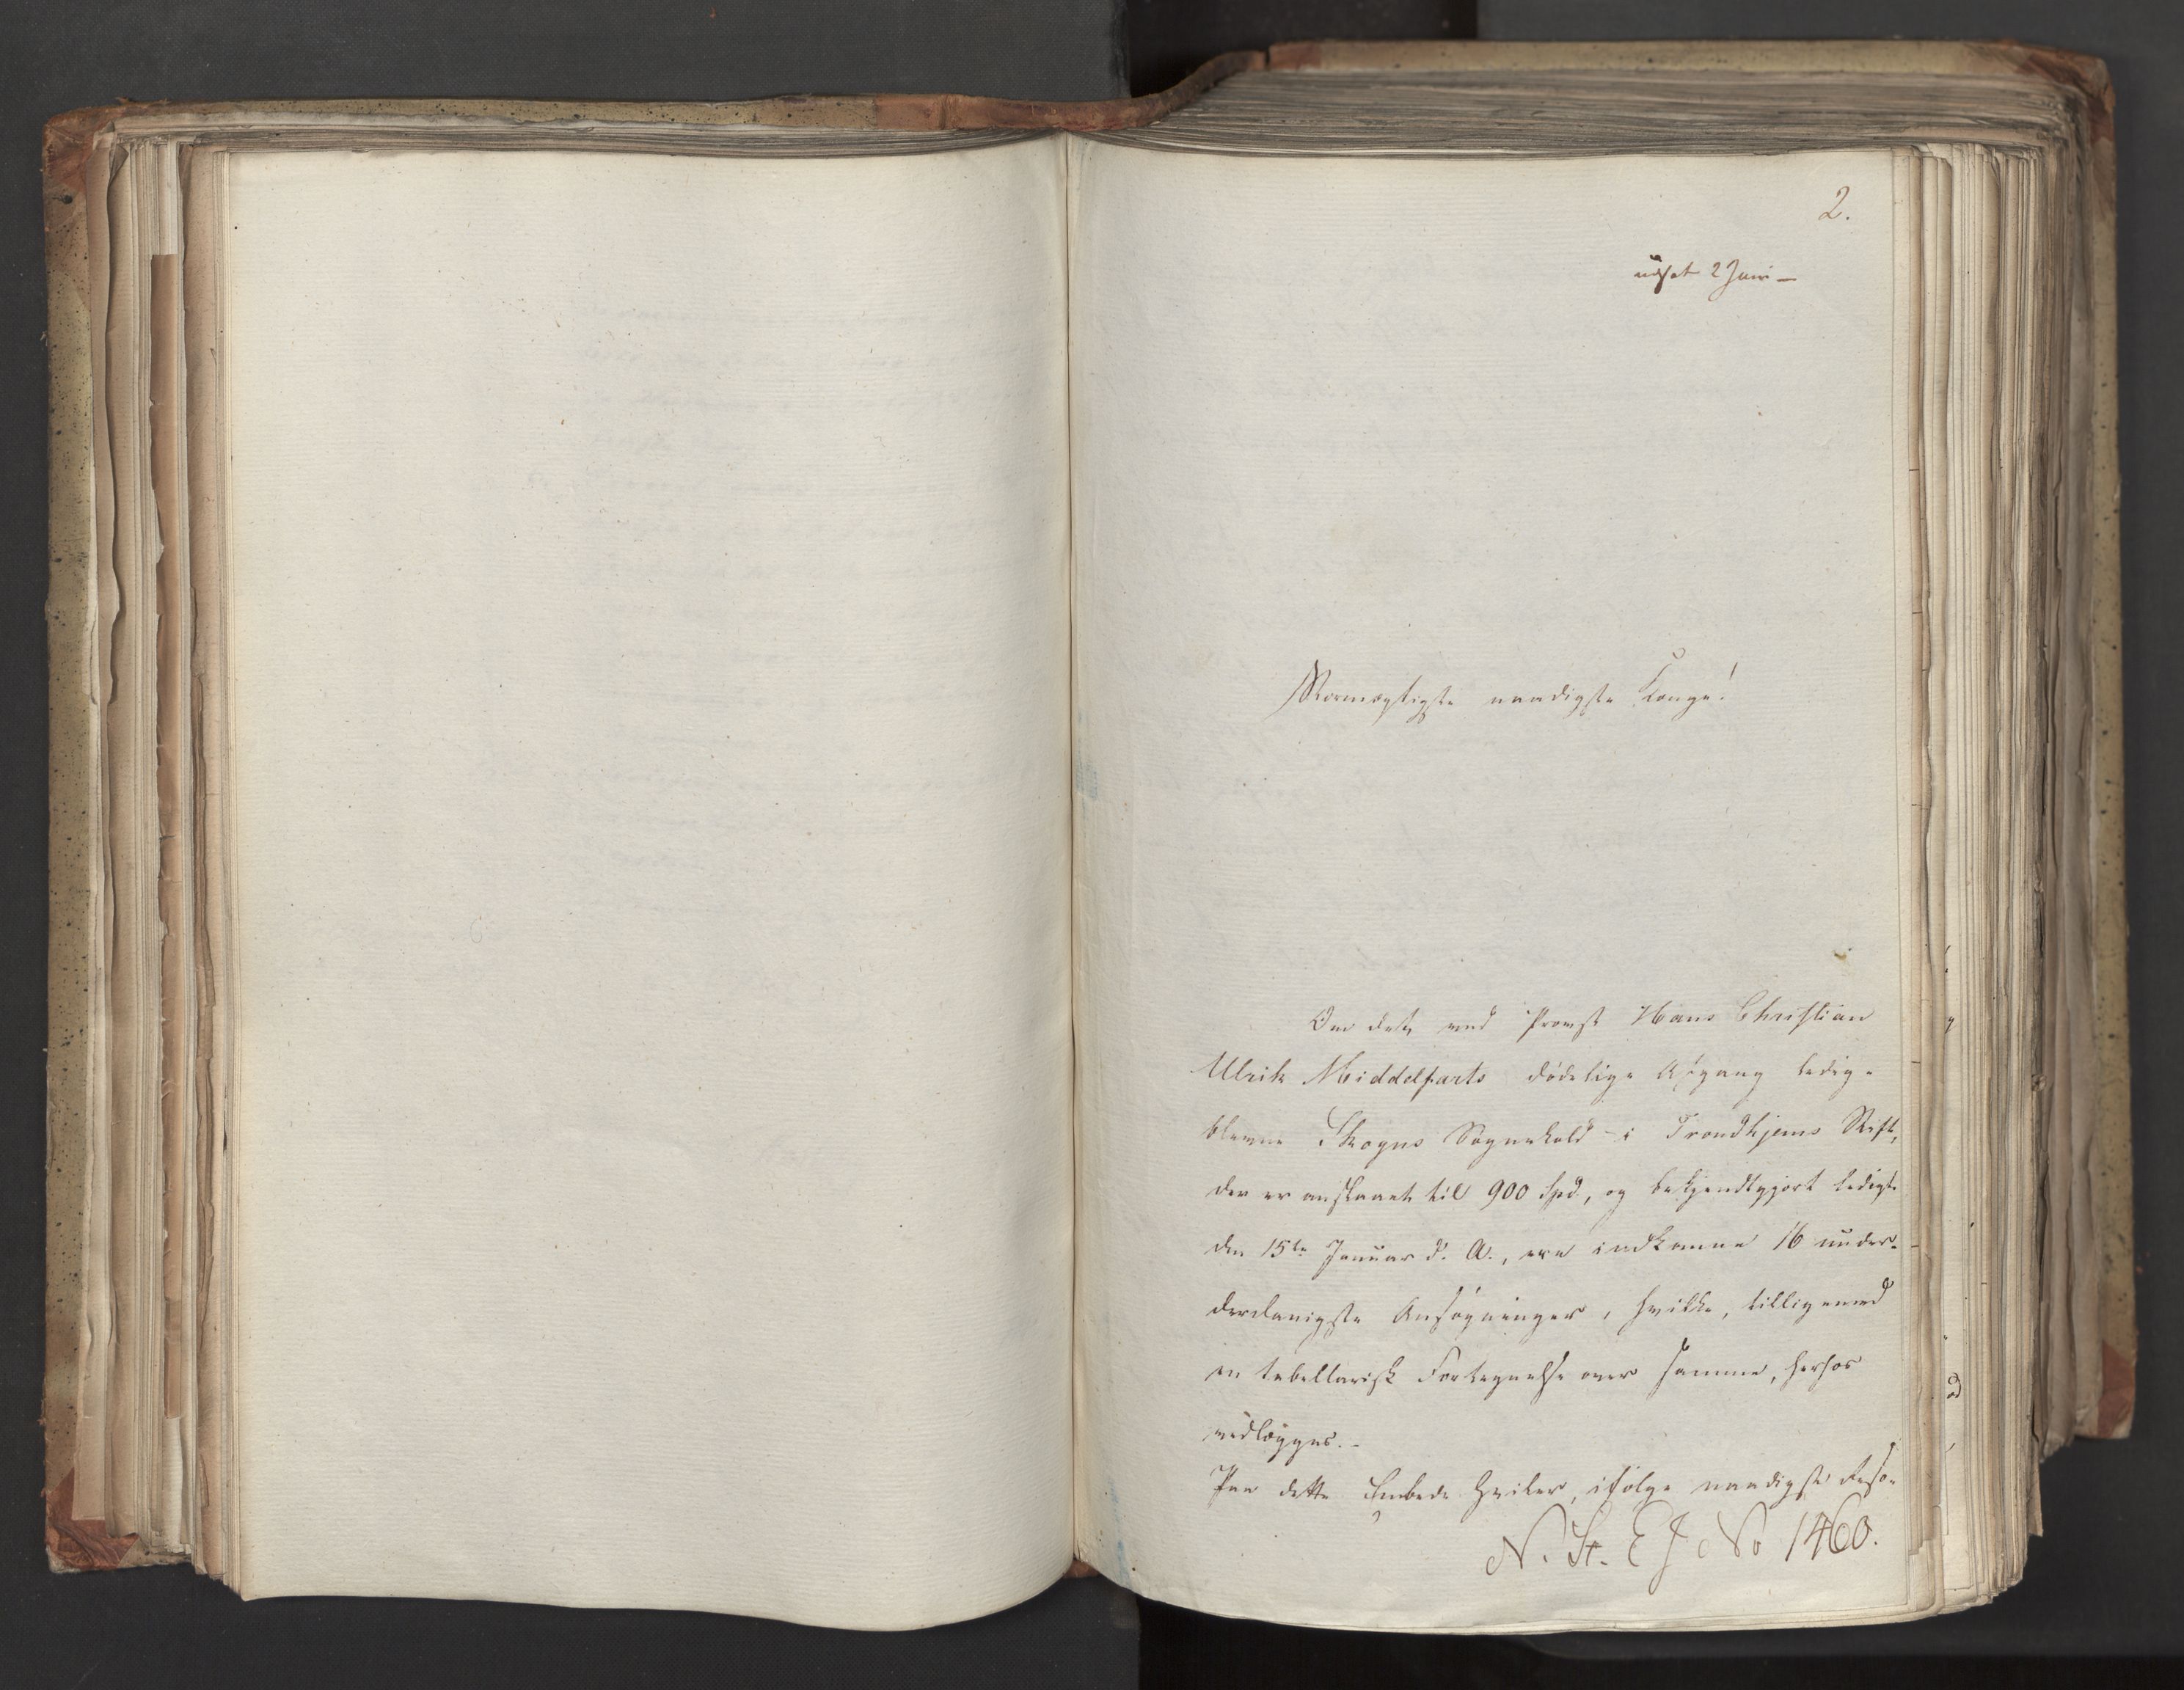 2.
udsat 2 Juni –
Stormægtigste naadigste Konge!
Om det, ved Provst Hans Christian
Ulrik Middelfarts dødelige Afgang ledig-
blevne Skogns Sognekald i Trondhjems Stift,
der er anslaaet til 900 Spd, og bekjendtgjort ledigt
den 15de Januar d. A., ere indkomne 16 under-
danigste Ansøgninger, hvilke, tilligemed
en tabellarisk Fortegnelse over samme, herhos
vedlægges. –
Paa dette Embede hviler, ifølge naadigste Reso-
N. St. E J No 1460.